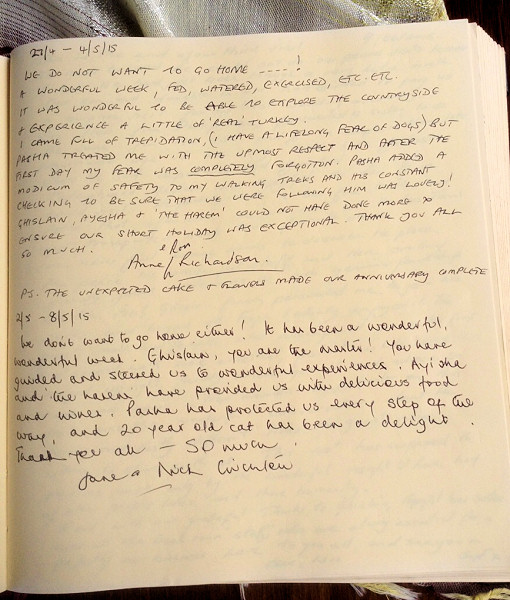 27/4 - 4/5/15
WE DO NOT WANT TO GO HOME ----- !
A WONDERFUL WEEK, FED, WATERED, EXERCISED, ETC. ETC.
IT WAS WONDERFUL TO BE ABLE TO EXPLORE THE COUNTRYSIDE
+ EXPERIENCE A LITTLE OF 'REAL' TURKEY.
I CAME FULL OF TREPIDATION, (I HAVE A LIFELONG FEAR OF DOGS) BUT
PASHA TREATED ME WITH THE UPMOST RESPECT AND AFTER THE
FIRST DAY MY FEAR WAS COMPLETELY FORGOTTON. PASHA ADDED A
MODICUM OF SAFETY TO MY WALKING TREKS AND HIS CONSTANT
CHECKING TO BE SURE THAT WE WERE FOLLOWING HIM WAS LOVELY!
GHISLAIN, AYESHA + 'THE HAREM' COULD NOT HAVE DONE MORE TO
ENSURE OUR SHORT HOLIDAY WAS EXCEPTIONAL. THANK YOU ALL
SO MUCH.
& Ron
Anne Richardson.
PS. THE UNEXPECTED CAKE + FLOWERS MADE OUR ANNIVERSARY COMPLETE
2/5 - 8/5/15
We don't want to go home either! It has been a wonderful,
wonderful week. Ghislain, you are the master! You have
guided and steered us to wonderful experiences. Ayisha
and the harem, have provided us with delicious food
and wines. Pasha has protected us every step of the
way, and 20 year old cat has been a delight.
Thank you all - SO much.
Jane & Nick